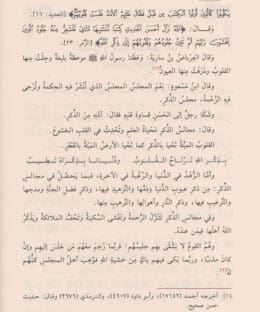 يَكُونُوا كَالَّذِينَ أُوتُوا الْكِتَابَ مِن قَبْلُ فَطَالَ عَلَيْهِمُ الْأَمَدُ فَقَسَتْ قُلُوبُهُمْ﴾ [الحديد: ١٦].
وقال: ﴿اللَّهُ نَزَّلَ أَحْسَنَ الْحَدِيثِ كِتَابًا مُّتَشَابِهًا مَّثَانِيَ تَقْشَعِرُّ مِنْهُ جُلُودُ الَّذِينَ
يَخْشَوْنَ رَبَّهُمْ ثُمَّ تَلِينُ جُلُودُهُمْ وَقُلُوبُهُمْ إِلَىٰ ذِكْرِ اللَّهِ﴾ [الزمر: ٢٣].
وقال العرباض بن سارية: وعظنا رسول الله ﷺ موعظة بليغة وجلت منها
القلوب وذرفت منها العيون(١).
وقال ابن مسعود: نعم المجلس المجلس الذي تُنشر فيه الحكمة وتُرجى
فيه الرحمة، مجالس الذكر.
وشكا رجل إلى الحسن قساوة قلبه فقال: أدْنِه من الذكر.
وقال: مجالس الذكر محياة العلم وتُحدِث في القلب الخشوع.
القلوب الميتة تحيا بالذكر كما تحيا الأرض الميتة بالقطر.
بذكر الله ترتاح القلوب ودنيانا بذكراه تطيب
وأما الزهد في الدنيا والرغبة في الآخرة، فبما يحصل في مجالس
الذكر: من ذكر عيوب الدنيا وذمها والتزهيد فيها، وذكر فضل الجنة ومدحها
والترغيب فيها، وذكر النار وأهوالها والترهيب منها.
وفي مجالس الذكر تتنزل الرحمة وتغشى السكينة وتحف الملائكة ويذكر
الله أهلها فيمن عنده.
وهم القوم لا يشقى بهم جليسهم، فربما رحم معهم من جلس إليهم وإن
كان مذنبًا، وربما بكى فيهم باكٍ من خشية الله فوهب أهل المجلس كلهم
له(٢).
(١) أخرجه أحمد (١٧١٤٢)، وأبو داود (٤٦٠٧)، والترمذي (٢٦٧٦) وقال: حديث
حسن صحيح.